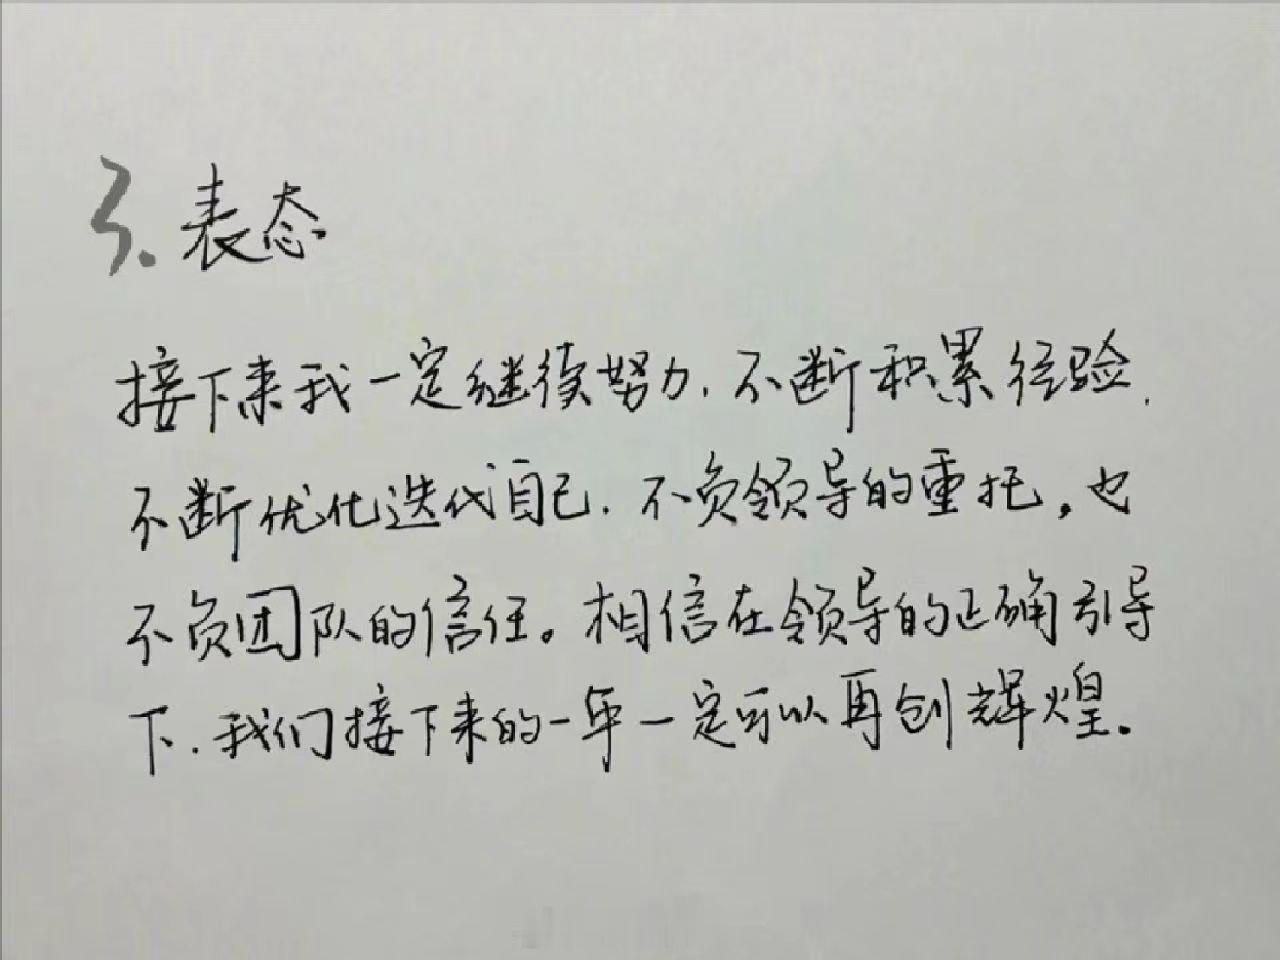 3. 表态
接下来我一定继续努力,不断积累经验,
不断优化迭代自己,不负领导的重托,也
不负团队的信任。相信在领导的正确引导
下,我们接下来的一年一定可以再创辉煌。